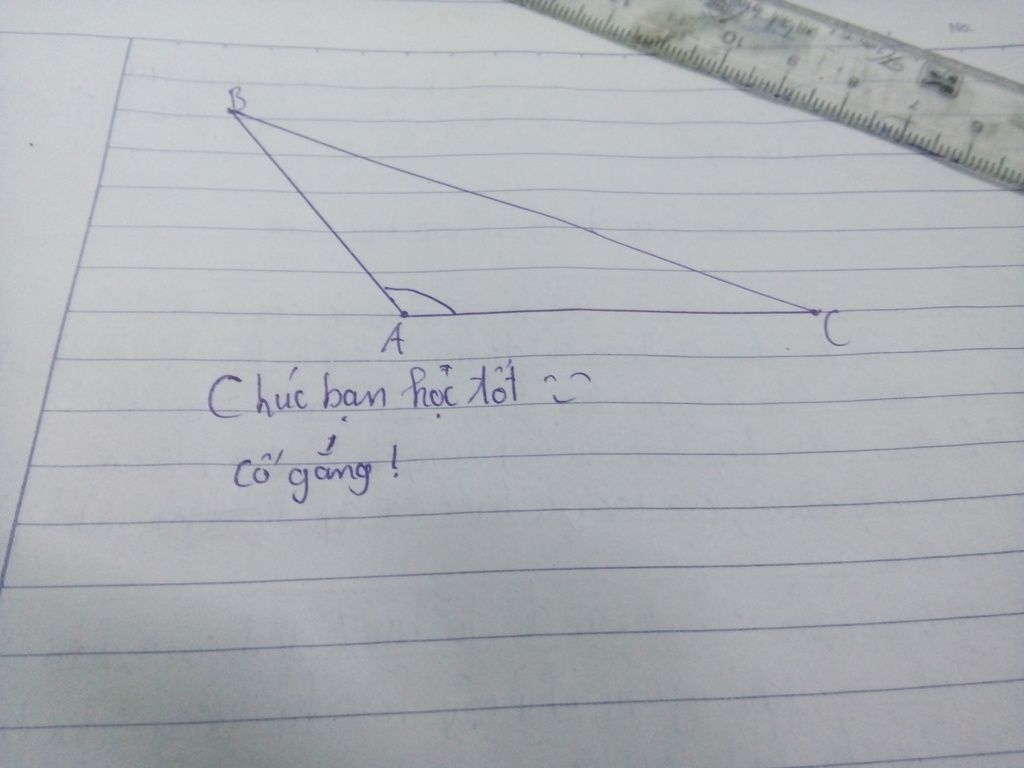 No.
10
9
8
7
6
B
A
C
Chúc bạn học tốt
cố gắng !